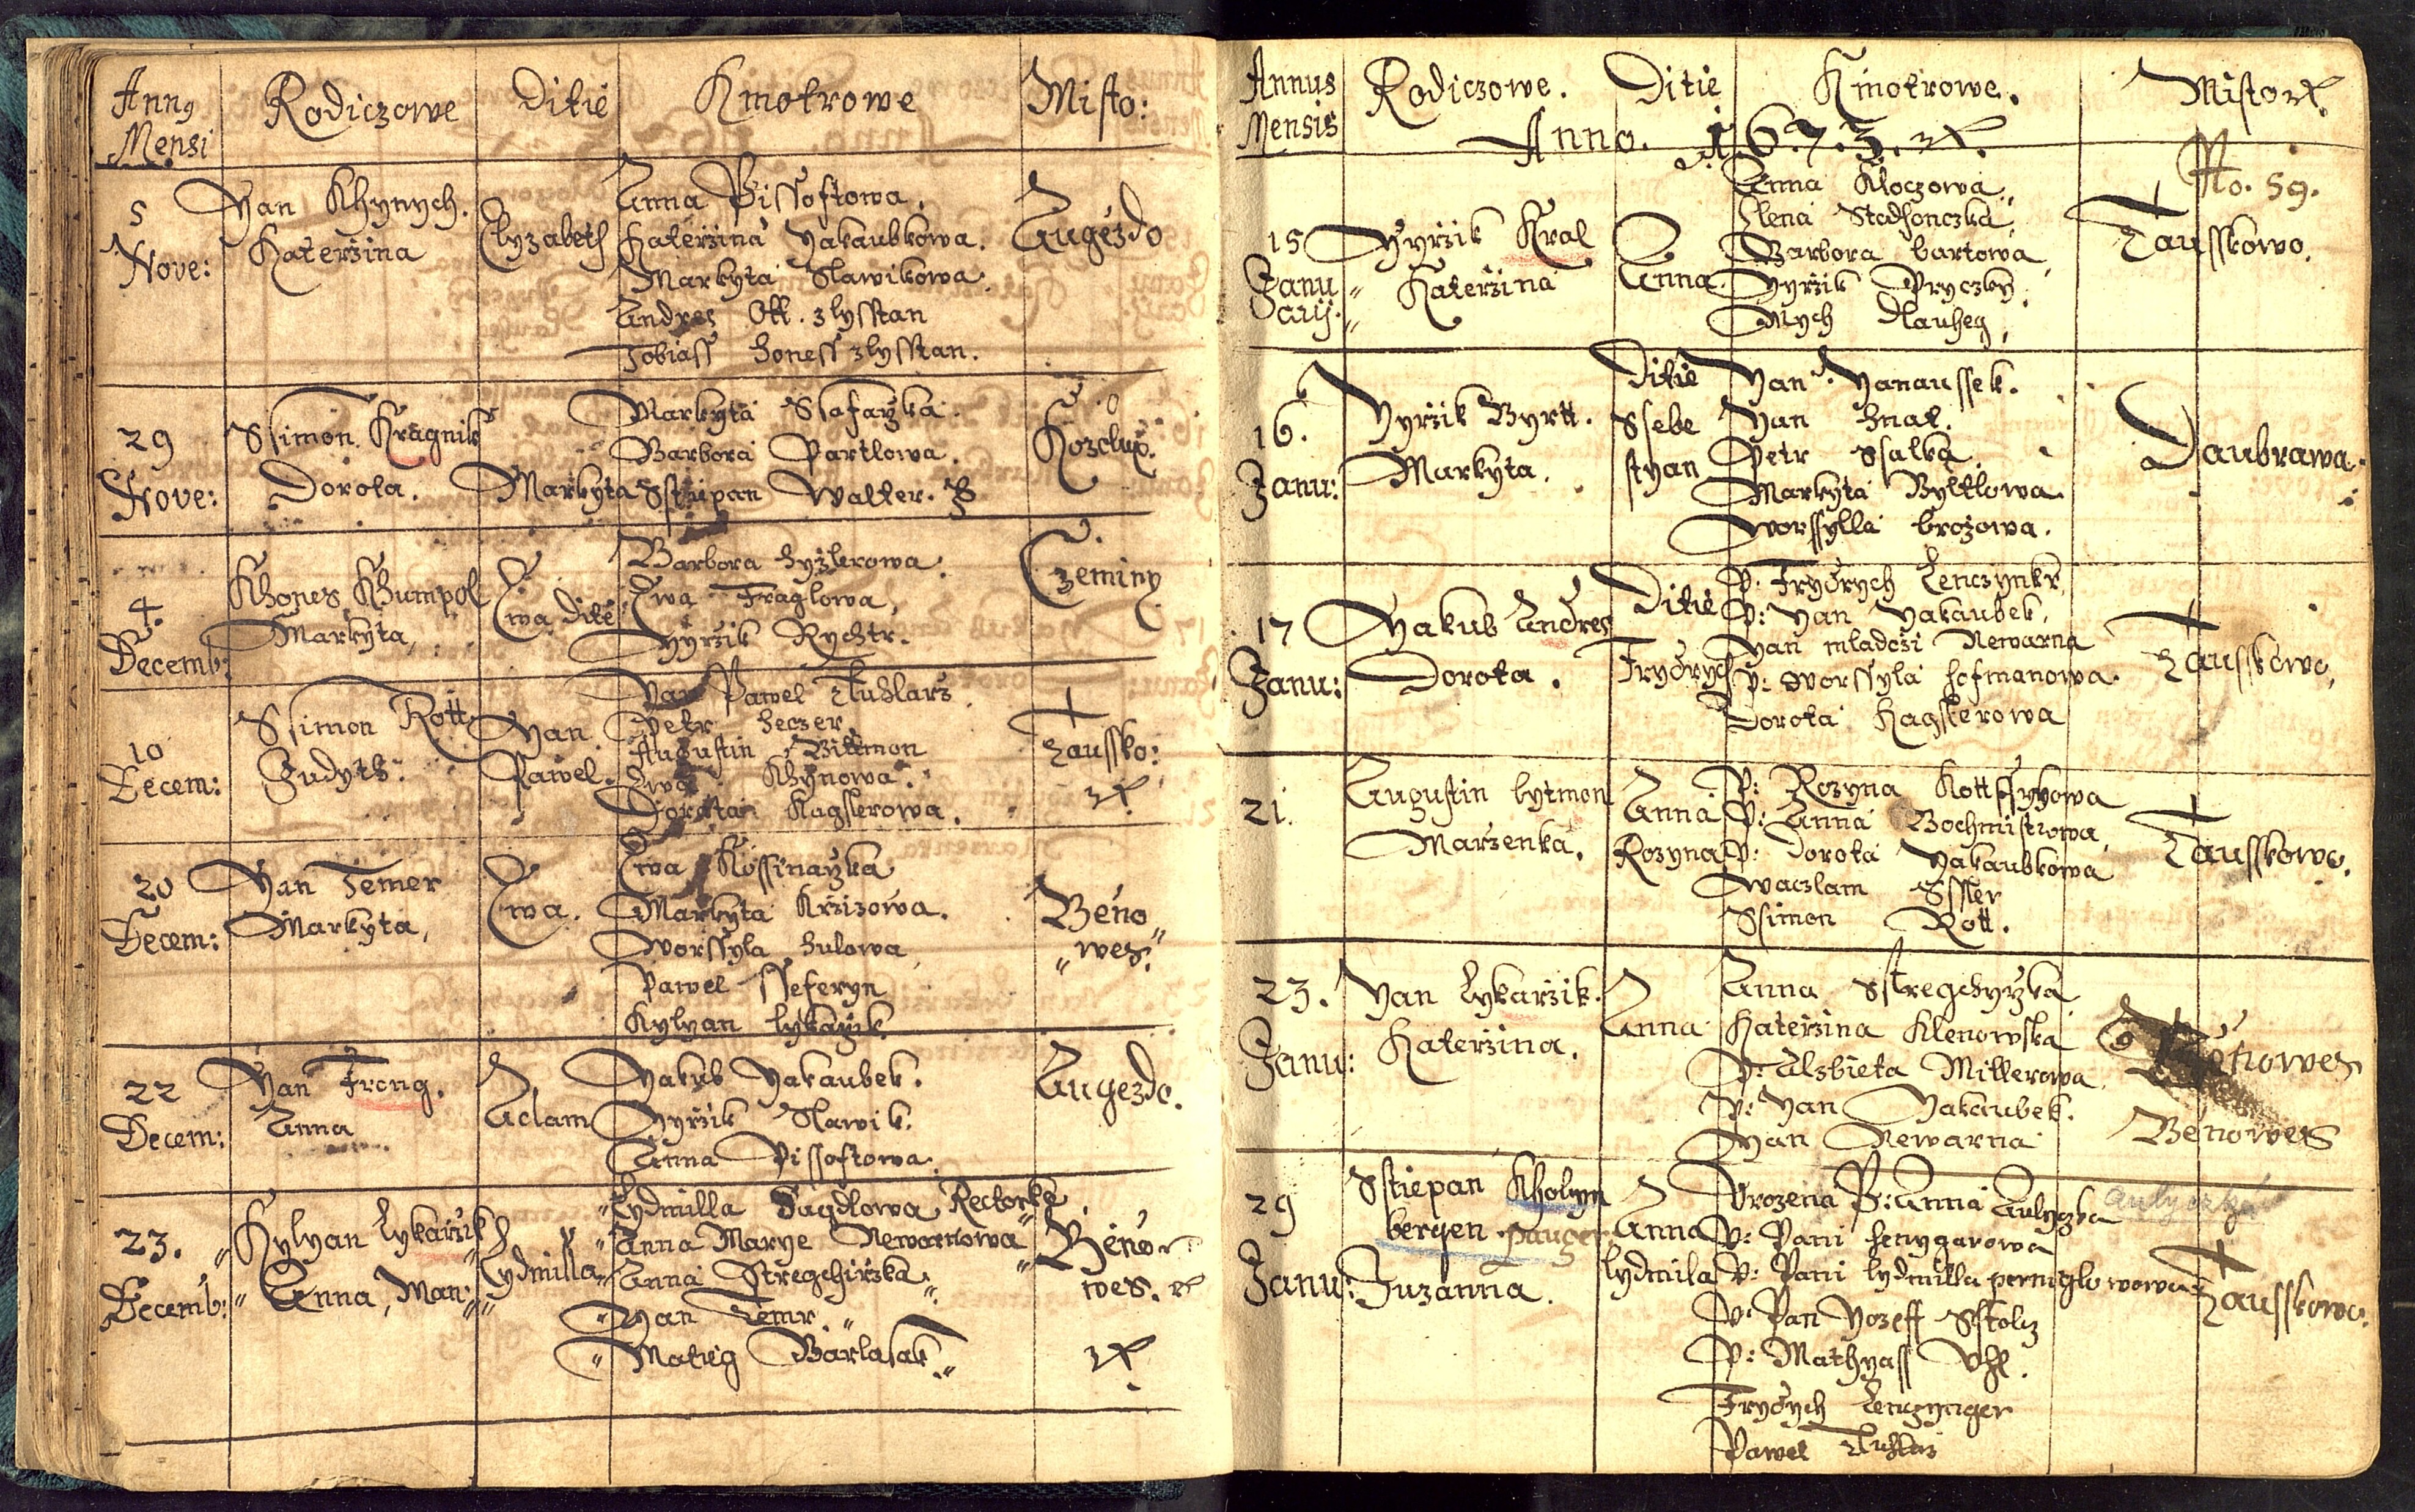 Anny Mensi Rodiczowe Ditie Kmotrowe Misto:
5 Nove: Yan Khynych. Katerzina
Elyzabeth
Anna Pissoftowa.
Katerzina Yakaubkowa.
Markyta Slawikowa.
Andres Ott. z lysstan
Tobiass honess z lysstan.
Augezdo
29 Nove: Ssimon Kragnik
Dorota.
Markyta
Markyta Ssafarzka.
Barbora Partlowa.
Sstiepan Walter.
Kozolup.
4. Decemb: Khones Khumpol
Markyta,
Ewa Dite
Barbora hyzlerowa.
Ewa Fraglowa,
Yyrzik Rychtr.
Czeminy
10 Decem: Ssimon Rott
Judyth.
Yan Pawel.
Pan Pawel Truhlarz
Petr heczer
Augustin Bittmon
Ewa Khynowa.
Dorota Kagslerowa.
Taussko:
20 Decem: Yan Temer
Markyta,
Ewa.
Ewa Kossinarzka
Markyta Krzizowa.
Worssyla hulowa
Pawel Sseferyn
Kylyan lykarzik
Beno
wes.
22 Decem: Yan Frong.
Anna
Adam
Yakub Yakaubek.
Yyrzik Slawik.
Anna Pissoftowa.
Augezdo.
23. Decemb: Kylyan Lykarzik
Anna, Man:
Lydmilla
Lydmilla Sagdlowa Rectorka
Anna Marye Newarnowa
Anna Stregchirzka
Yan Temr.
Matieg Barlasak
Beno
wes.
Annus Mensis Rodiczowe. Ditie Kmotrowe. Misto
Anno. 1.6.7.3.
No. 59.
15 Januarij. Yyrzik Kral
Katerzina
Anna.
Anna Kloczowa
Elena Stadsonczka
Barbora bartowa
Yyrzik Pryczky
Mych Dlauheg
Tausskowo.
16. Janu: Yyrzik Byrtt.
Markyta.
Ditie Ssebe styan
Yan Yanaussek.
Yan hnat.
Petr Ssalka
Markyta Byttlowa
Worssylla brozowa.
Daubrawa.
17 Janu: Yakub Andres
Dorota.
Ditie Frydrych
P: Frydrych Lenczynkr
P: Yan Yakaubek.
Yan mladssi Newarna
P: Worssyla hofmanowa.
Dorota Kagslerowa
Tausskowo.
21. Augustin bytmon
Marzenka.
Anna Rozyna
P: Rozyna Kottssyowa
P: Anna Bochmistrowa
P: Dorota Yakaubkowa
Waczlam Ssster
Ssimon Rott.
Tausskowo.
23. Janu: Yan Lykarzik.
Katerzina.
Anna
Anna Sstregchyrzka
Katerzina Klenowska
P: Alzbieta Millerowa
P: Yan Yakaubek.
Yan Newarna
Benowes
Benowes
29 Janu: Sstiepan Kholyn
bergen Pauger
Zuzanna.
Anna lydmila
Urozena P: Anna Aulyczka
Aulyczka
P: Pani henygarowa
P: Pani lydmilla permglowowa
P: Pan Yozeff Sstolcz
P: Mathyass Vhl.
Frydrych Lenczynger
Pawel Truhlarz
Tausskowo.